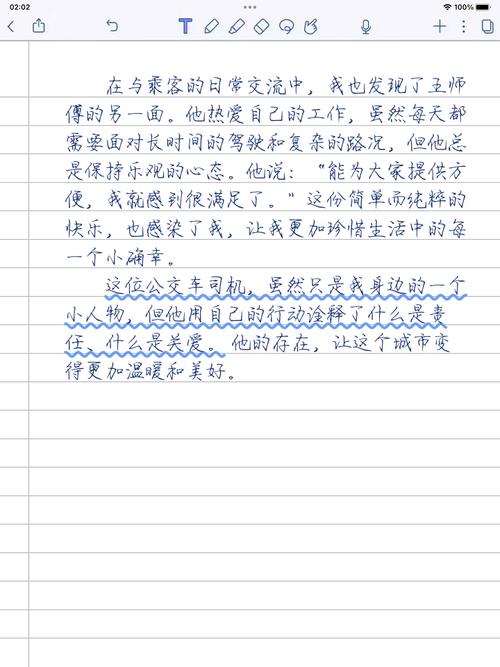 02:02
100%
T
在与乘客的日常交流中，我也发现了王师
傅的另一面。他热爱自己的工作，虽然每天都
需要面对长时间的驾驶和复杂的路况，但他总
是保持乐观的心态。他说：“能为大家提供方
便，我就感到很满足了。”这份简单而纯粹的
快乐，也感染了我，让我更加珍惜生活中的每
一个小确幸。
这位公交车司机，虽然只是我身边的一个
小人物，但他用自己的行动诠释了什么是责
任、什么是关爱。他的存在，让这个城市变
得更加温暖和美好。